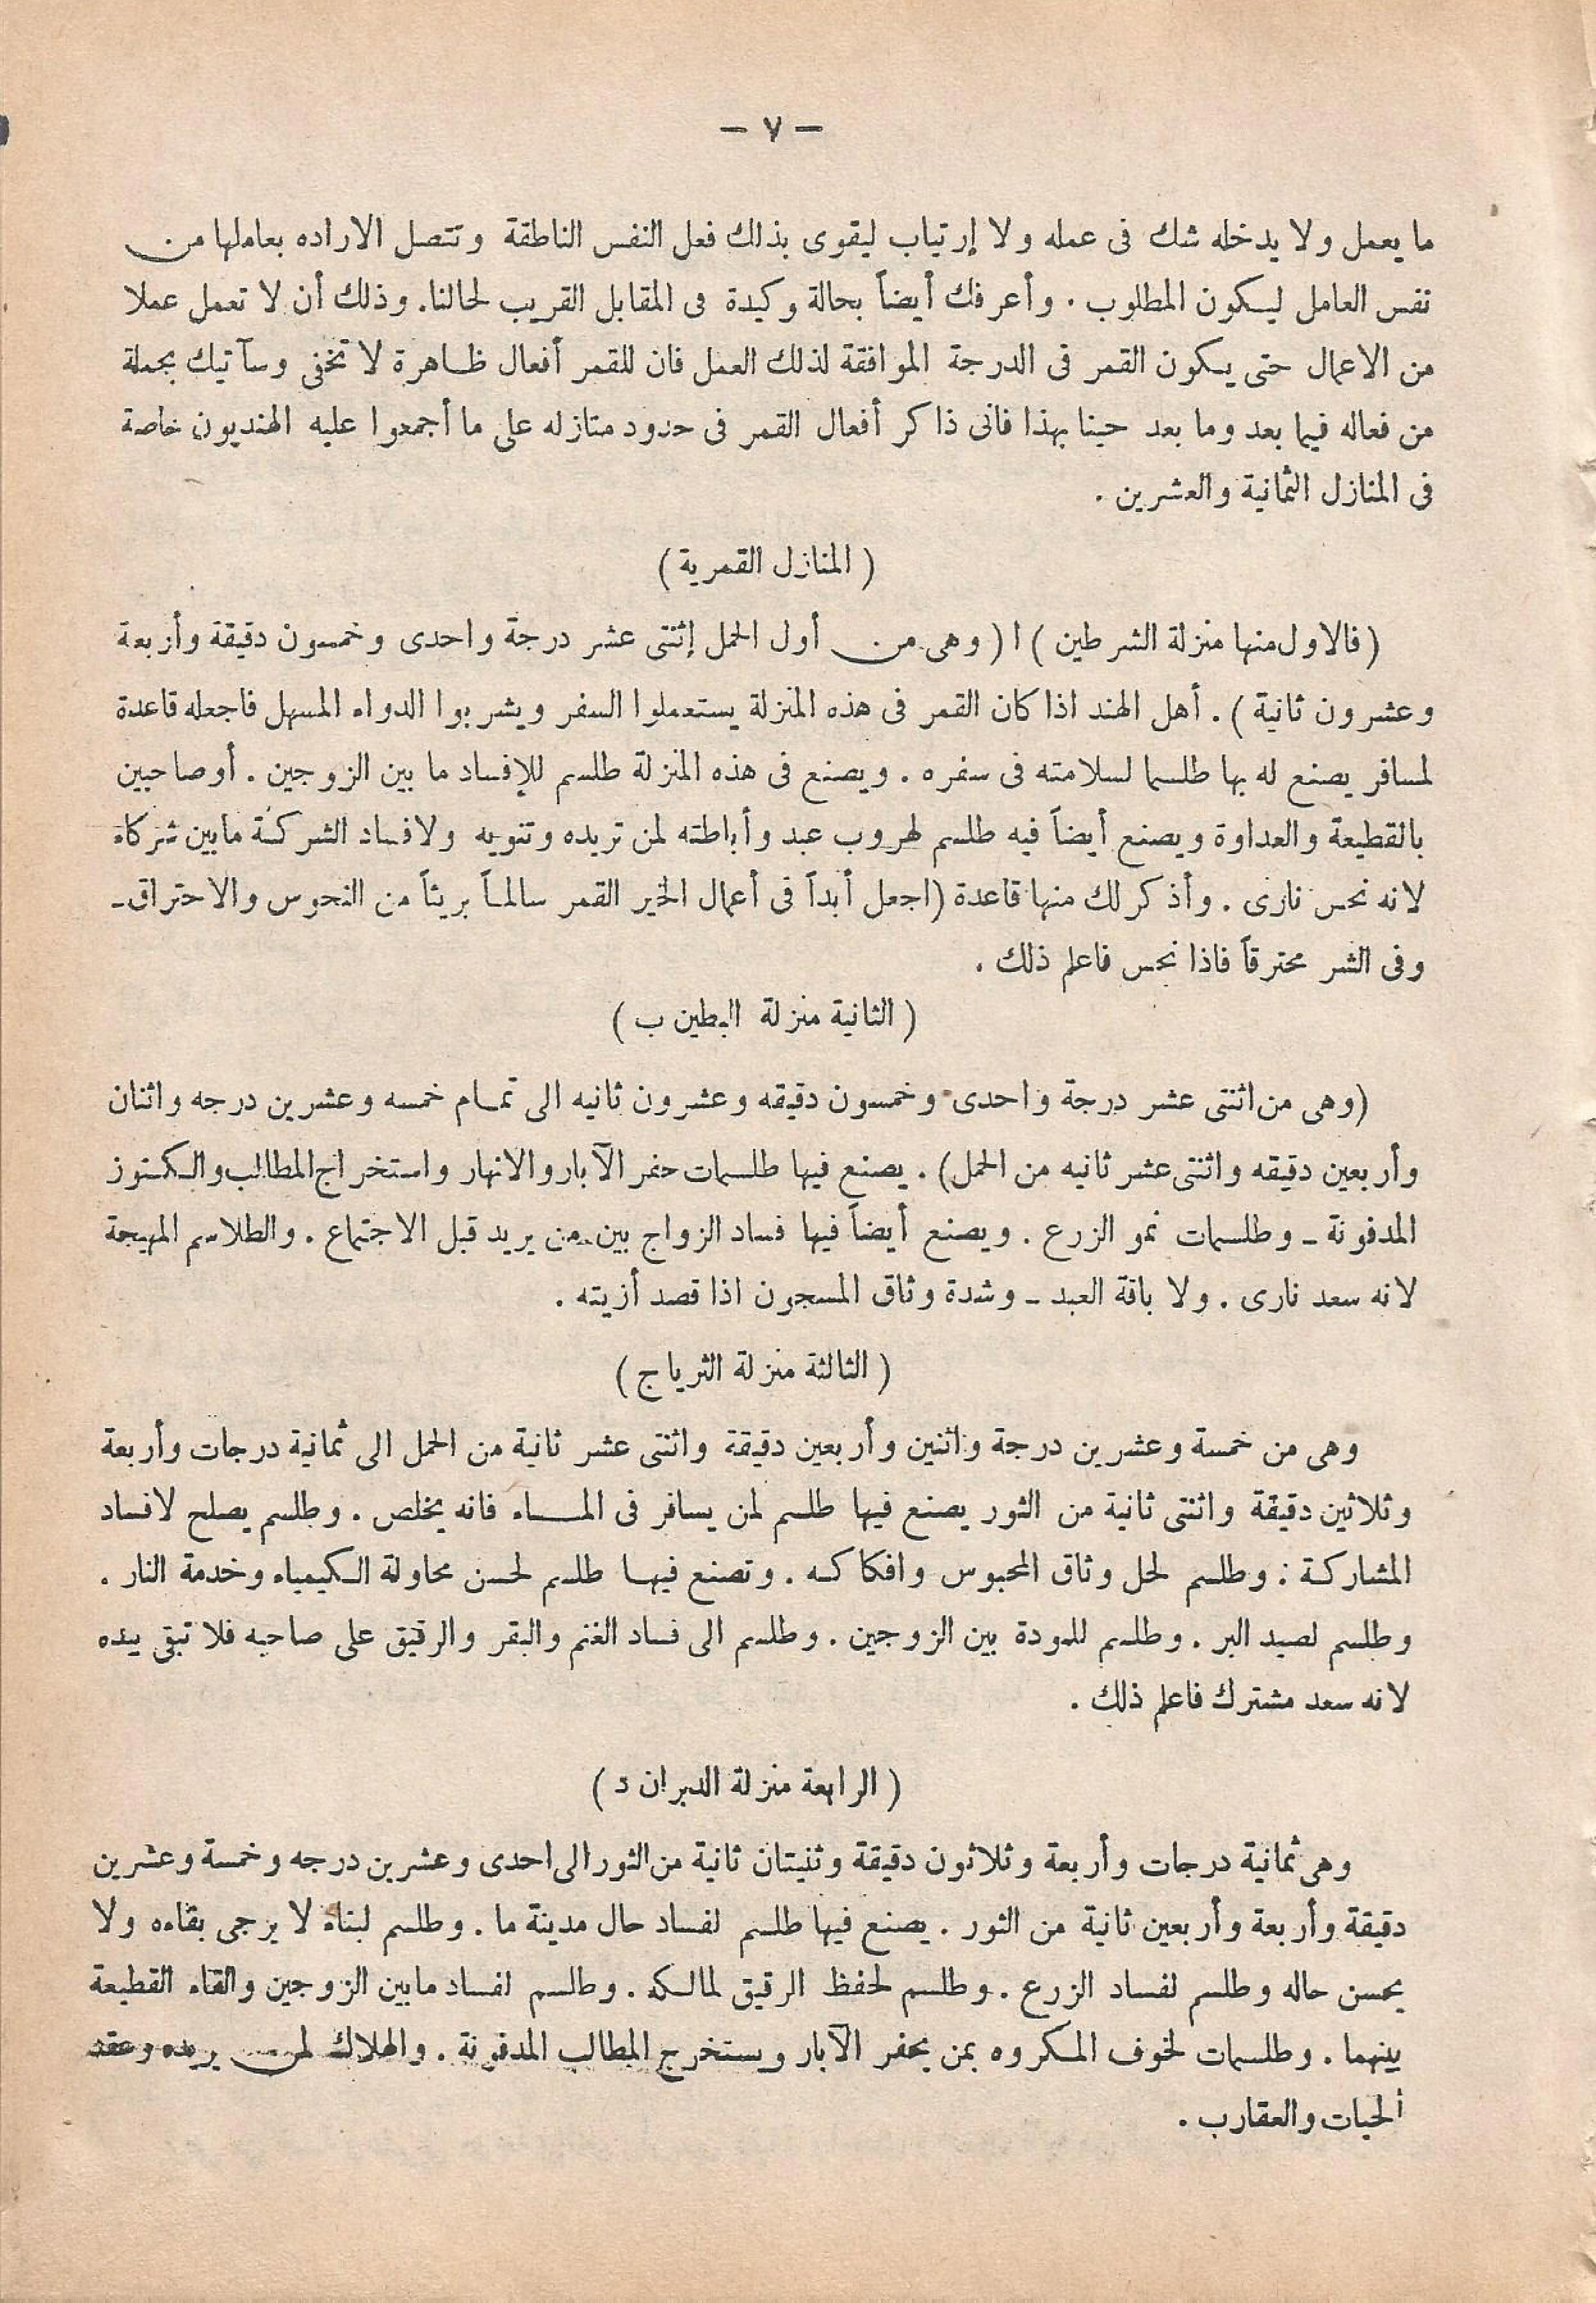 — ٧ —
ما يعمل ولا يدخله شك فى عمله ولا إرتياب ليقوى بذلك فعل النفس الناطقة وتتصل الاراده بعاملها من
نفس العامل ليكون المطلوب . وأعرفك أيضاً بحالة وكيدة فى المقابل القريب لحالنا . وذلك أن لا تعمل عملا
من الاعمال حتى يكون القمر فى الدرجة الموافقة لذلك العمل فان للقمر أفعال ظاهرة لا تخفى وسآتيك بجملة
من فعاله فيما بعد وما بعد حينا بهذا فانى ذاكر أفعال القمر فى حدود متازله على ما أجمعوا عليه الهنديون خاصة
فى المنازل الثمانية والعشرين .
( المنازل القمرية )
( فالاول منها منزلة الشرطين ) ا ( وهى من أول الحمل إثنتى عشر درجة واحدى وخمسون دقيقة وأربعة
وعشرون ثانية ) . أهل الهند اذا كان القمر فى هذه المنزلة يستعملوا السفر ويشربوا الدواء المسهل فاجعله قاعدة
لمسافر يصنع له بها طلسما لسلامته فى سفره . ويصنع فى هذه المنزلة طلسم للإفساد ما بين الزوجين . أو صاحبين
بالقطيعة والعداوة ويصنع أيضاً فيه طلسم لهروب عبد وأباطته لمن تريده وتنويه ولافساد الشركة مابين شركاء
لانه نحس نارى . وأذكر لك منها قاعدة ( اجعل أبداً فى أعمال الخير القمر سالماً بريئاً من النحوس والاحتراق ــ
وفى الشر محترقاً فاذا نحس فاعلم ذلك .
( الثانية منزلة البطين ب )
( وهى من اثنتى عشر درجة واحدى وخمسون دقيقه وعشرون ثانيه الى تمام خمسه وعشرين درجه واثنان
وأربعين دقيقه واثنتى عشر ثانيه من الحمل ) . يصنع فيها طلسمات حفر الآبار والانهار واستخراج المطالب والكنوز
المدفونة ــ وطلسمات نمو الزرع . ويصنع أيضاً فيها فساد الزواج بين من يريد قبل الاجتماع . والطلاسم المهيجة
لانه سعد نارى . ولا باقة العبد ــ وشدة وثاق المسجون اذا قصد أزيته .
( الثالثة منزلة الثريا ج )
وهى من خمسة وعشرين درجة واثنين وأربعين دقيقة واثنتى عشر ثانية من الحمل الى ثمانية درجات وأربعة
وثلاثين دقيقة واثنتى ثانية من الثور يصنع فيها طلسم لمن يسافر فى الماء فانه يخلص . وطلسم يصلح لافساد
المشاركة : وطلسم لحل وثاق المحبوس وافكاكه . وتصنع فيها طلسم لحسن محاولة الكيمياء وخدمة النار .
وطلسم لصيد البر . وطلسم للمودة بين الزوجين . وطلسم الى فساد الغنم والبقر والرقيق على صاحبه فلا تبقى بيده
لانه سعد مشترك فاعلم ذلك .
( الرابعة منزلة الدبران د )
وهى ثمانية درجات وأربعة وثلاثون دقيقة وثنيتان ثانية من الثور الى احدى وعشرين درجه وخمسة وعشرين
دقيقة وأربعة وأربعين ثانية من الثور . يصنع فيها طلسم لفساد حال مدينة ما . وطلسم لبناء لا يرجى بقاءه ولا
يحسن حاله وطلسم لفساد الزرع . وطلسم لحفظ الرقيق لمالكه . وطلسم لفساد مابين الزوجين والقاء القطيعة
بينهما . وطلسمات لخوف المكروه بمن يحفر الآبار ويستخرج المطالب المدفونة . والهلاك لمن يريده وعقد
ألحيات والعقارب .